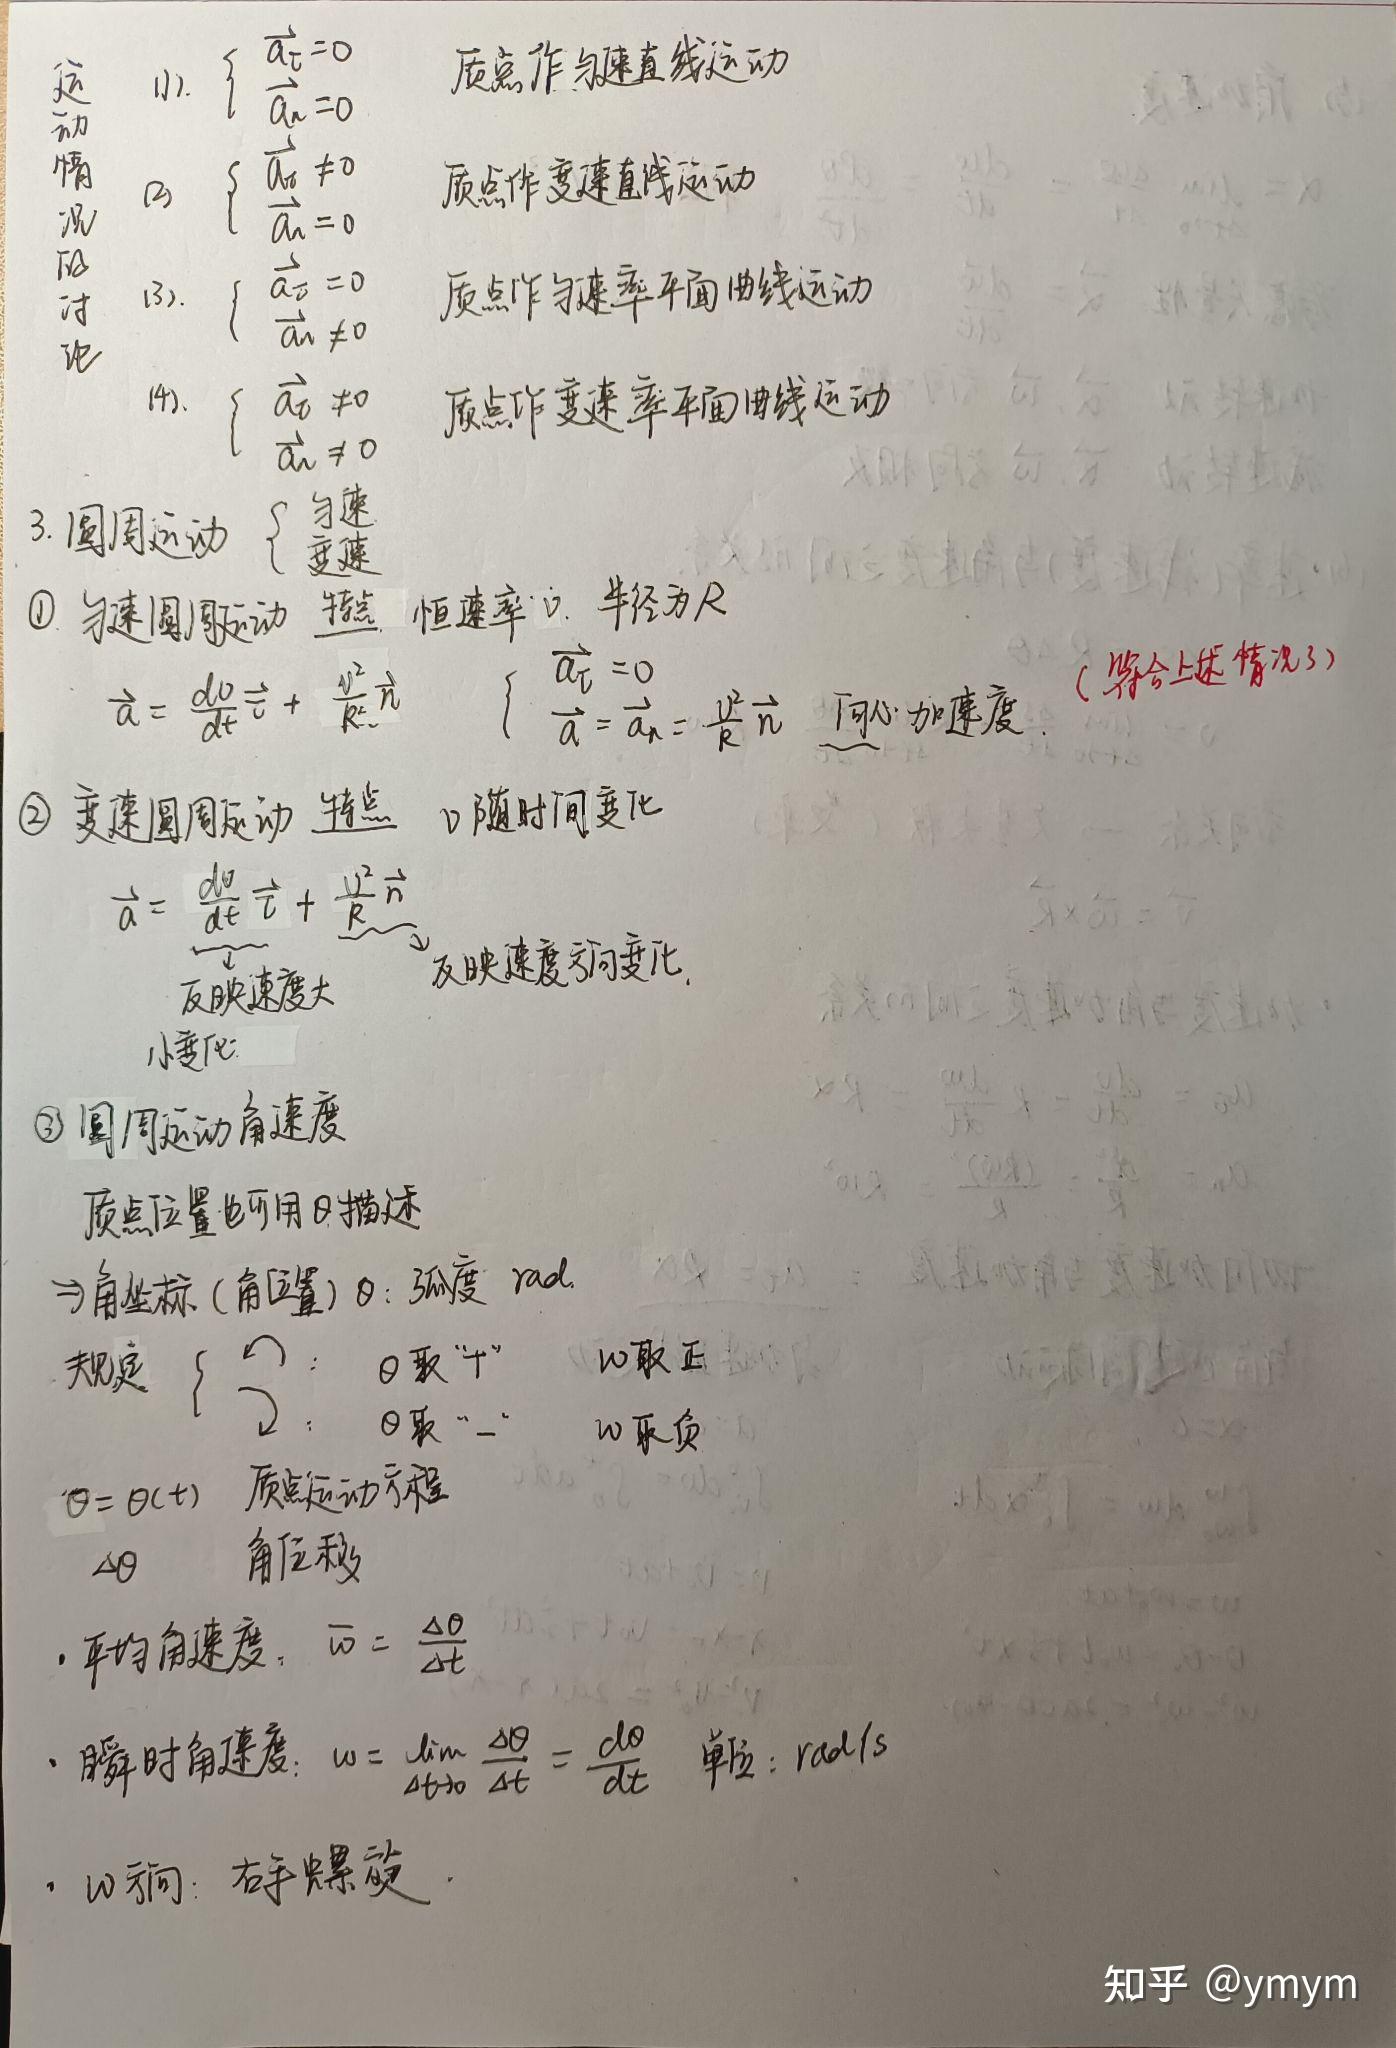 运动情况的讨论
(1). { a⃗τ = 0
a⃗n = 0 质点作匀速直线运动
(2) { a⃗τ ≠ 0
a⃗n = 0 质点作变速直线运动
(3). { a⃗τ = 0
a⃗n ≠ 0 质点作匀速率平面曲线运动
(4). { a⃗τ ≠ 0
a⃗n ≠ 0 质点作变速率平面曲线运动
3. 圆周运动 { 匀速
变速
① 匀速圆周运动 特点 恒速率υ. 半径为R
a⃗ = dυ/dt τ⃗ + υ²/R n⃗ { a⃗τ = 0
a⃗ = a⃗n = υ²/R n⃗ 向心加速度. (符合上述情况3)
② 变速圆周运动 特点 υ随时间变化
a⃗ = dυ/dt τ⃗ + υ²/R n⃗
→ 反映速度方向变化.
↓
反映速度大
小变化
③ 圆周运动角速度
质点位置也可用θ描述
⇒角坐标(角位置) θ: 弧度 rad.
规定 { ↶ : θ取“+” ω取正
⤵ : θ取“-” ω取负
θ = θ(t) 质点运动方程
Δθ 角位移
· 平均角速度: ω̄ = Δθ/Δt
· 瞬时角速度: ω = lim Δt→0 Δθ/Δt = dθ/dt 单位: rad/s
· ω方向: 右手螺旋.
知乎 @ymym